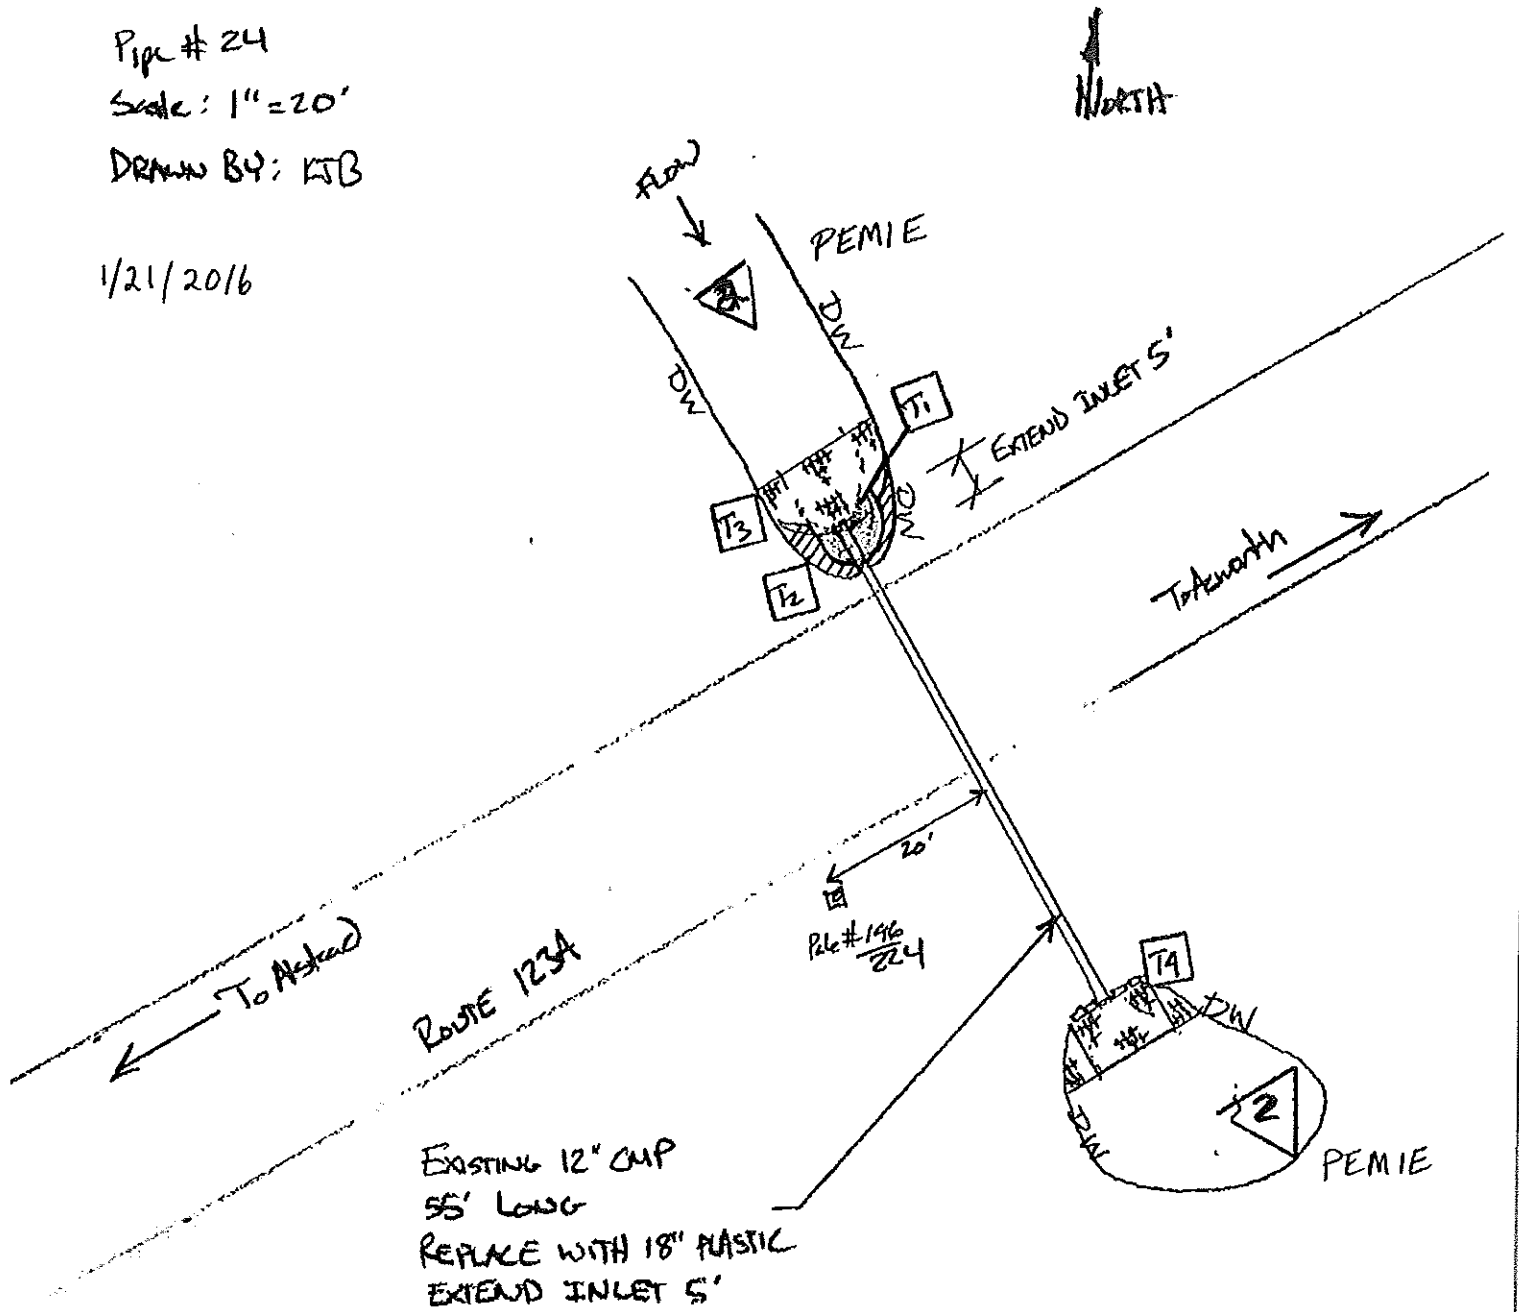 Pipe # 24
Scale: 1" = 20'
DRAWN BY: KJB
1/21/2016
NORTH
FLOW
PEMIE
DW
DW
T1
EXTEND INLET 5'
T3
DW
T2
To Acworth
20'
Pole # 196/224
To Alstead
ROUTE 123A
T4
DW
2
DW
PEMIE
EXISTING 12" CMP
55' LONG
REPLACE WITH 18" PLASTIC
EXTEND INLET 5'